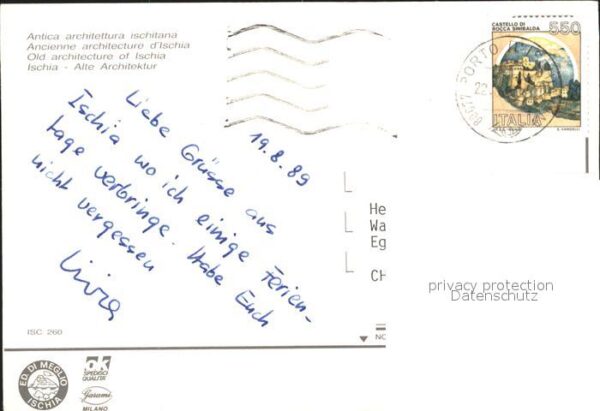 Antica architettura ischitana
Ancienne architecture d'Ischia
Old architecture of Ischia
Ischia - Alte Architektur
CASTELLO DI
ROCCA SINIBALDA
550
ITALIA
PORTO
22
19.8.89
Liebe Grüsse aus
Ischia wo ich einige Ferien-
tage verbringe. Habe Euch
nicht vergessen
He
Wa
Eg
CH
privacy protection
Datenschutz
ISC 260
NO
ED. DI MEGLIO
ISCHIA
ok
SPEDISCI
QUALITA'
Garami
MILANO